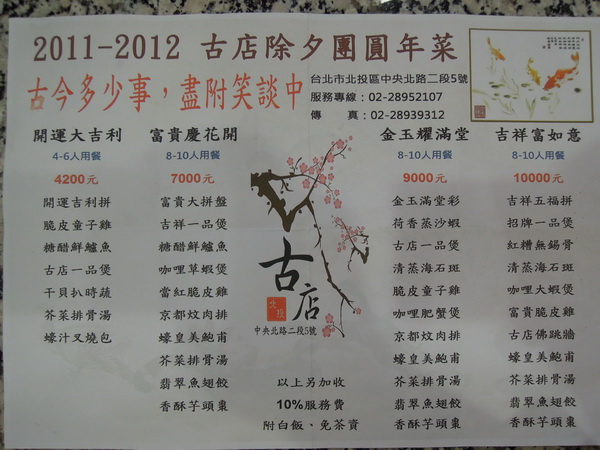 2011-2012 古店除夕團圓年菜
古今多少事，盡附笑談中
台北市北投區中央北路二段5號
服務專線：02-28952107
傳　　真：02-28939312
開運大吉利
4-6人用餐
4200元
開運吉利拼
脆皮童子雞
糖醋鮮鱸魚
古店一品煲
干貝扒時蔬
芥菜排骨湯
蠔汁叉燒包
富貴慶花開
8-10人用餐
7000元
富貴大拼盤
吉祥一品煲
糖醋鮮鱸魚
咖哩草蝦煲
當紅脆皮雞
京都炆肉排
蠔皇美鮑甫
芥菜排骨湯
翡翠魚翅餃
香酥芋頭棗
古店
北投
中央北路二段5號
以上另加收
10%服務費
附白飯、免茶資
金玉耀滿堂
8-10人用餐
9000元
金玉滿堂彩
荷香蒸沙蝦
古店一品煲
清蒸海石斑
脆皮童子雞
咖哩肥蟹煲
京都炆肉排
蠔皇美鮑甫
芥菜排骨湯
翡翠魚翅餃
香酥芋頭棗
吉祥富如意
8-10人用餐
10000元
吉祥五福拼
招牌一品煲
紅糟無錫骨
清蒸海石斑
咖哩大蝦煲
富貴脆皮雞
古店佛跳牆
蠔皇美鮑甫
芥菜排骨湯
翡翠魚翅餃
香酥芋頭棗